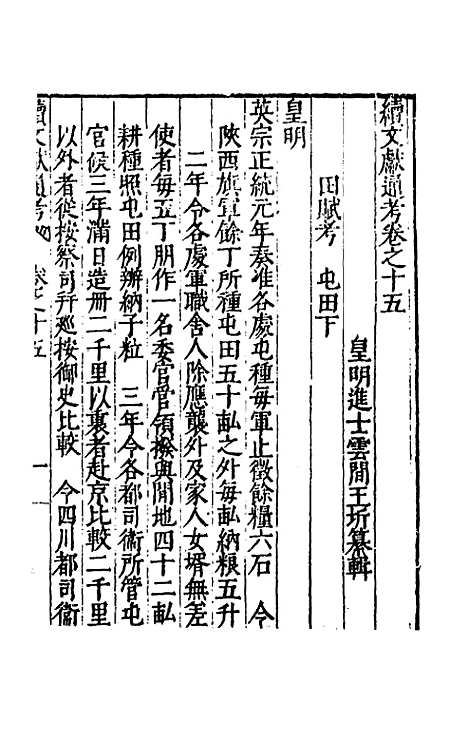 續文獻通考卷之十五
皇明進士雲間王圻纂輯
田賦考 屯田下
皇明
英宗正統元年奏准各處屯種每軍止徵餘糧六石 令
陝西旗軍餘丁所種屯田五十畝之外每畝納粮五升
二年令各處軍職舍人除應襲外及家人女壻無差
使者每五丁朋作一名委官管領撥與閒地四十二畝
耕種照屯田例辦納子粒 三年令各都司衛所管屯
官候三年滿日造冊二千里以裏者赴京比較二千里
以外者從按察司幷巡按御史比較 令四川都司衛
續文獻通考 卷之十五 一